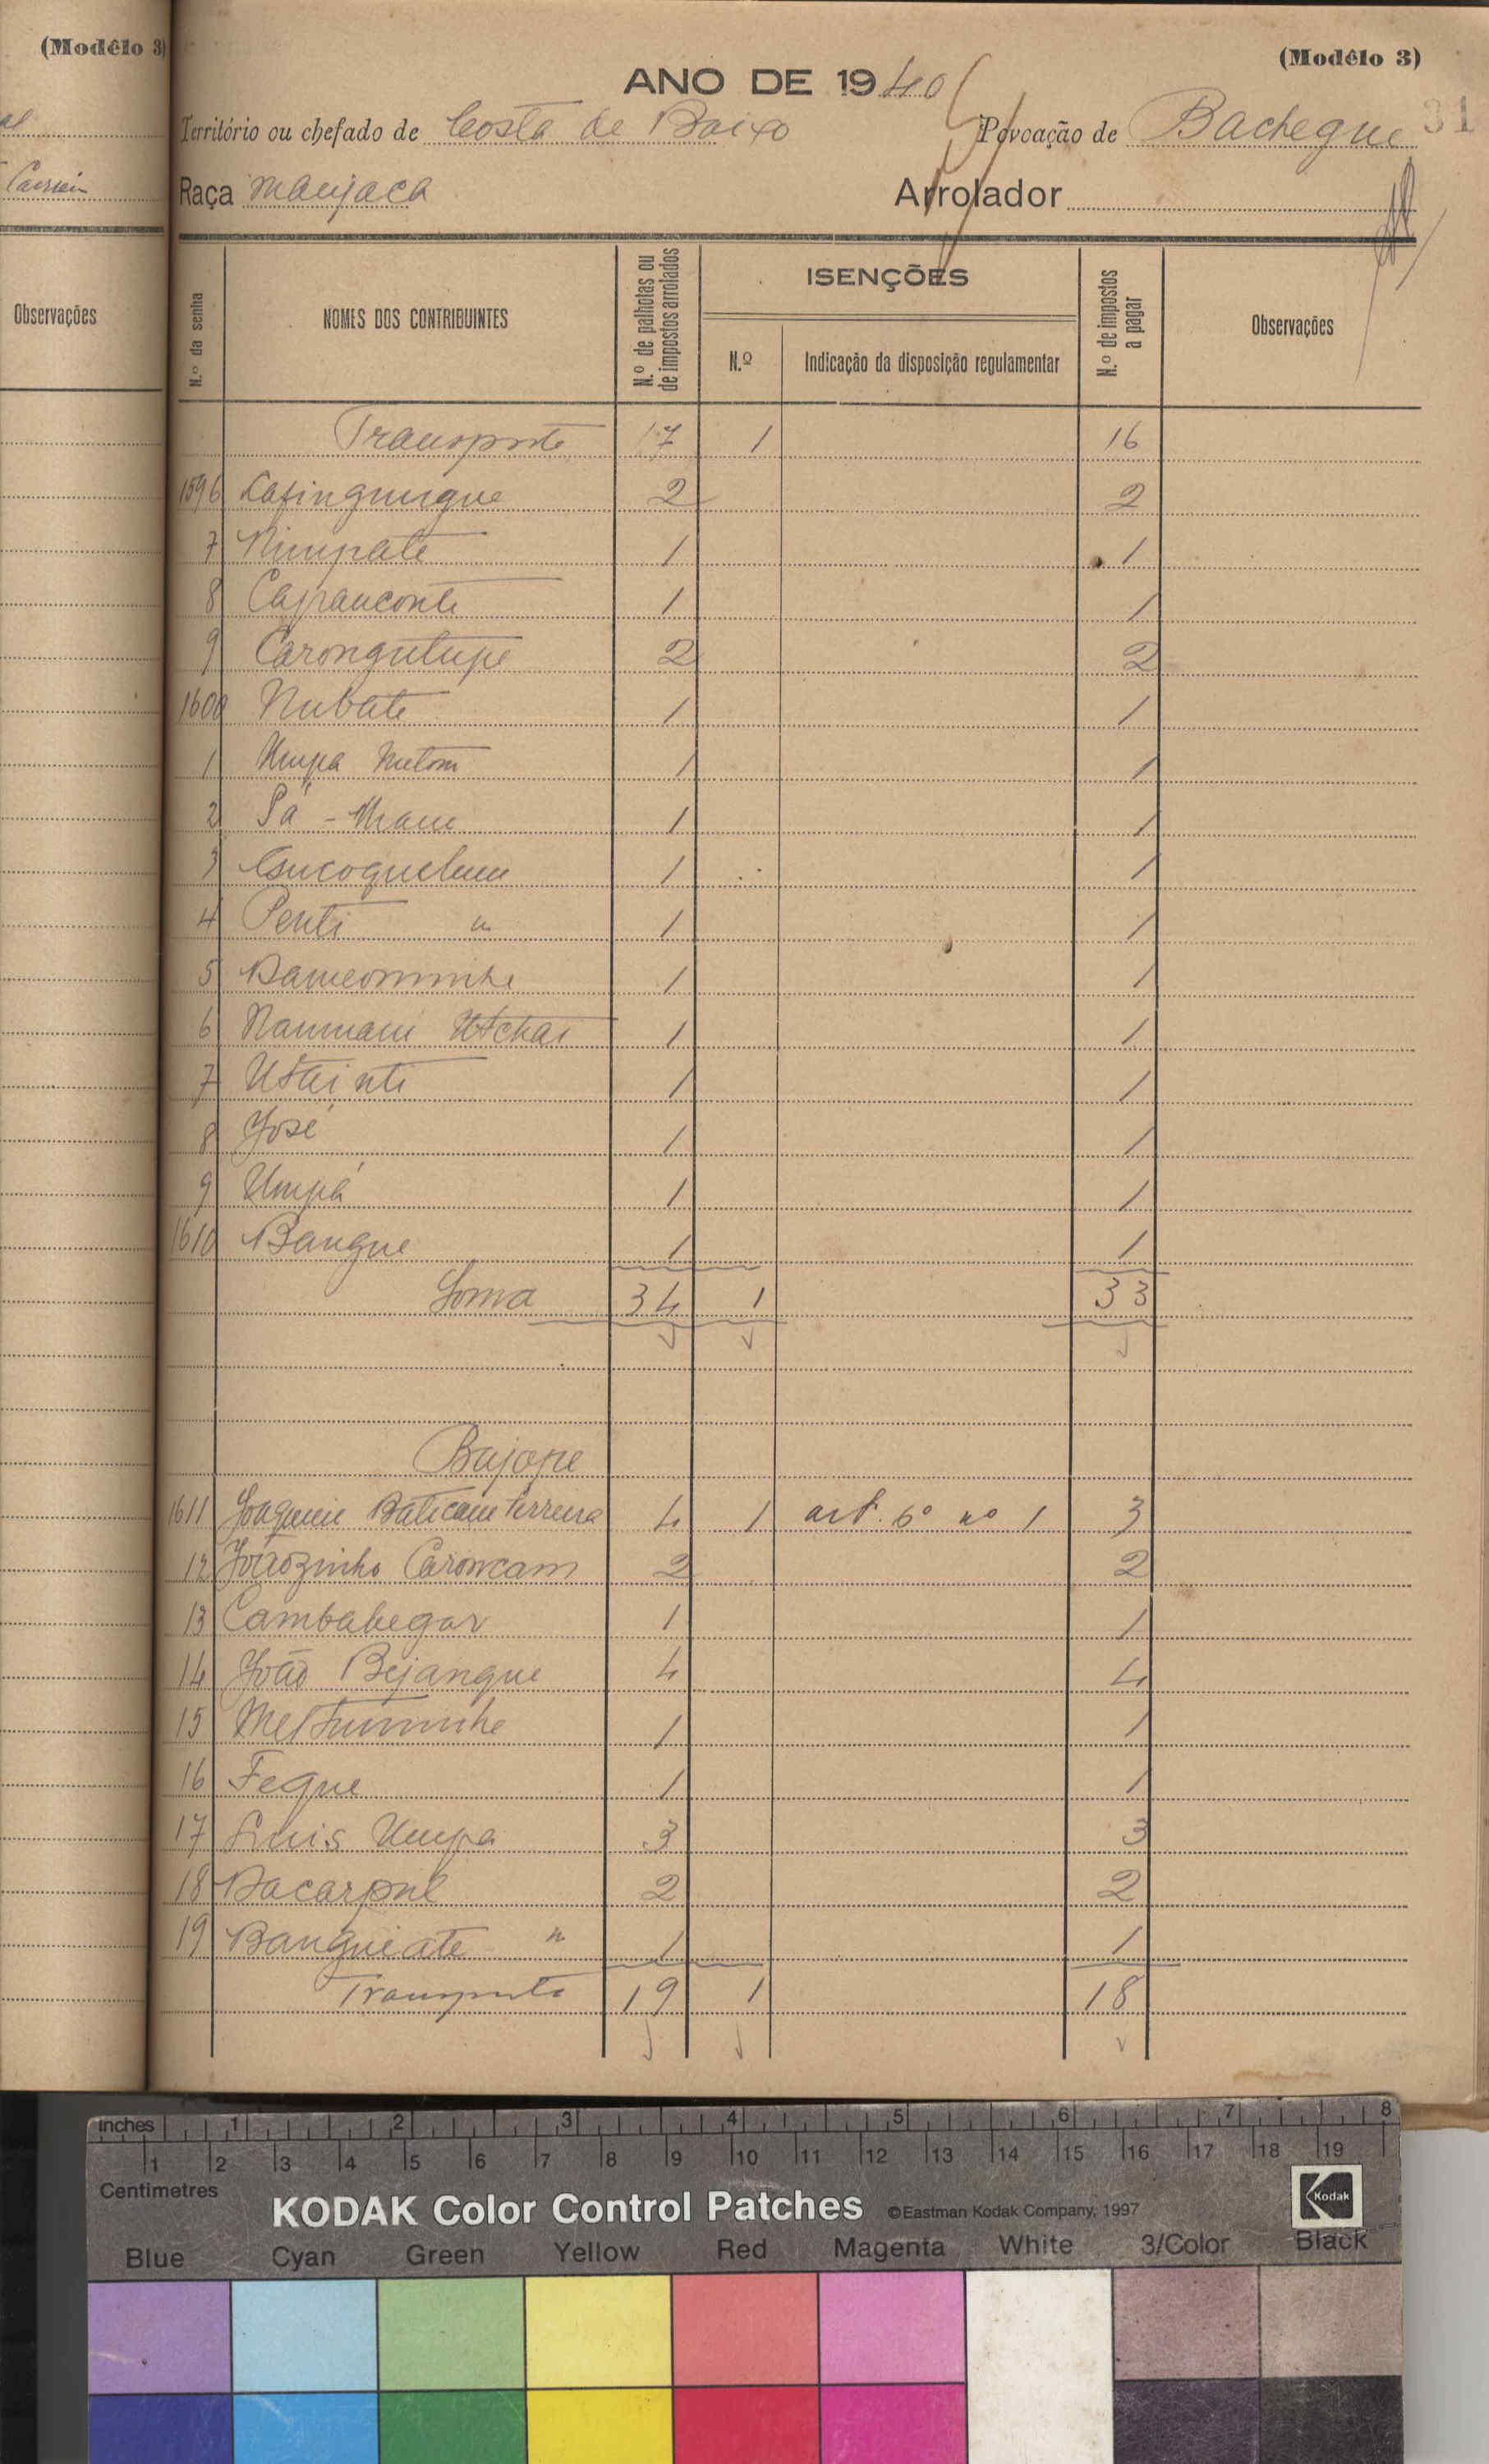 (Modêlo 3)
Observações
(Modêlo 3)
31
ANO DE 1940
Território ou chefado de Costa de Baixo Povoação de Bachegue
Raça manjaca Arrolador
N.º da senha NOMES DOS CONTRIBUINTES N.º de palhotas ou de impostos arrolados ISENÇÕES N.º de impostos a pagar Observações
N.º Indicação da disposição regulamentar
Transporte 17 1 16
1596 Lafingungue 2 2
7 Nimpate 1 1
8 Capanconte 1 1
9 Carongutupe 2 2
1600 Nubate 1 1
1 Umpa 1 1
2 Pá - 1 1
3 1 1
4 Penti " 1 1
5 1 1
6 Utchai 1 1
7 1 1
8 José 1 1
9 Umpá 1 1
1610 Bangue 1 1
Soma 34 1 33
Bajope
1611 Joaquim Baticam Ferreira 4 1 art. 6º nº 1 3
12 Joãozinho Caroncam 2 2
13 1 1
14 João Bejangue 4 4
15 1 1
16 Feque 1 1
17 Luis Umpa 3 3
18 2 2
19 Banguiate " 1 1
Transporte 19 1 18
inches 1 2 3 4 5 6 7 8
1 2 3 4 5 6 7 8 9 10 11 12 13 14 15 16 17 18 19
Centimetres
KODAK Color Control Patches ©Eastman Kodak Company, 1997 Kodak
Blue Cyan Green Yellow Red Magenta White 3/Color Black